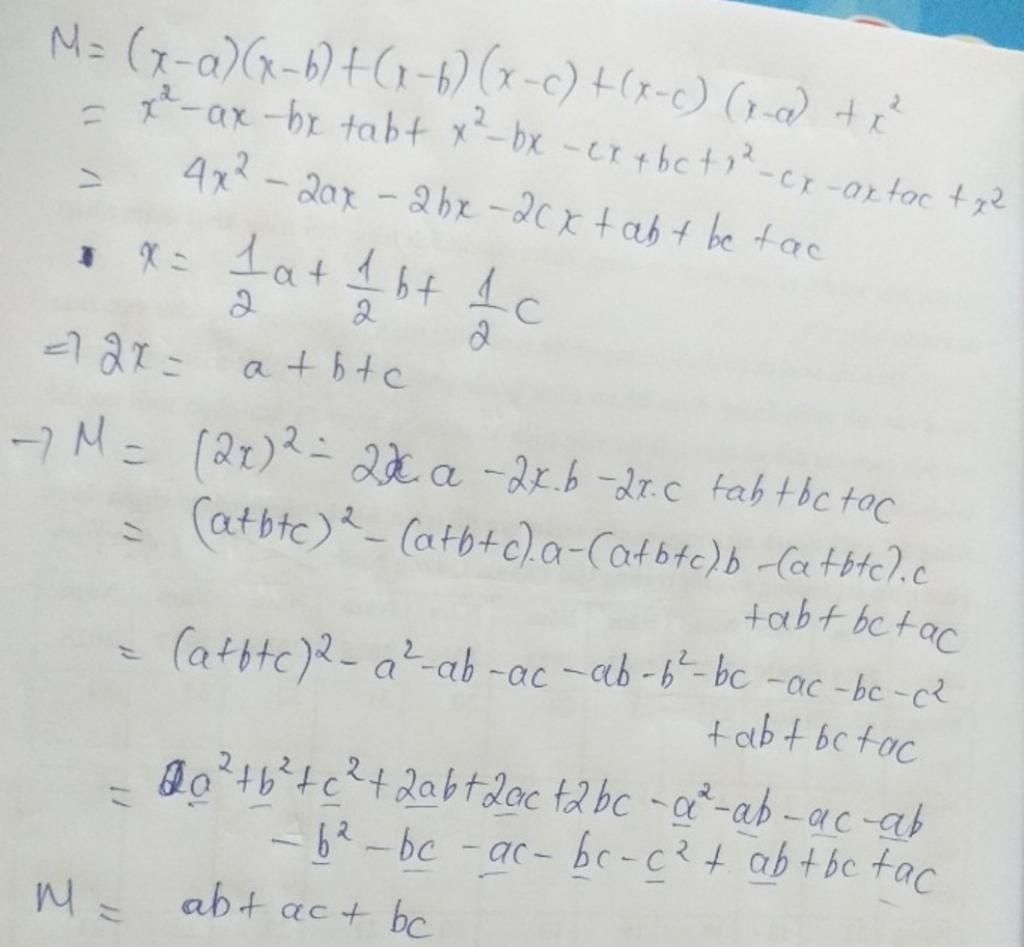 M = (x-a)(x-b)+(x-b)(x-c)+(x-c)(x-a) + x²
= x² - ax - bx + ab + x² - bx - cx + bc + x² - cx - ax + ac + x²
= 4x² - 2ax - 2bx - 2cx + ab + bc + ac
x = 1/2 a + 1/2 b + 1/2 c
=> 2x = a + b + c
-> M = (2x)² - 2x.a - 2x.b - 2x.c + ab + bc + ac
= (a+b+c)² - (a+b+c).a - (a+b+c).b - (a+b+c).c
+ ab + bc + ac
= (a+b+c)² - a² - ab - ac - ab - b² - bc - ac - bc - c²
+ ab + bc + ac
= a² + b² + c² + 2ab + 2ac + 2bc - a² - ab - ac - ab
- b² - bc - ac - bc - c² + ab + bc + ac
M = ab + ac + bc